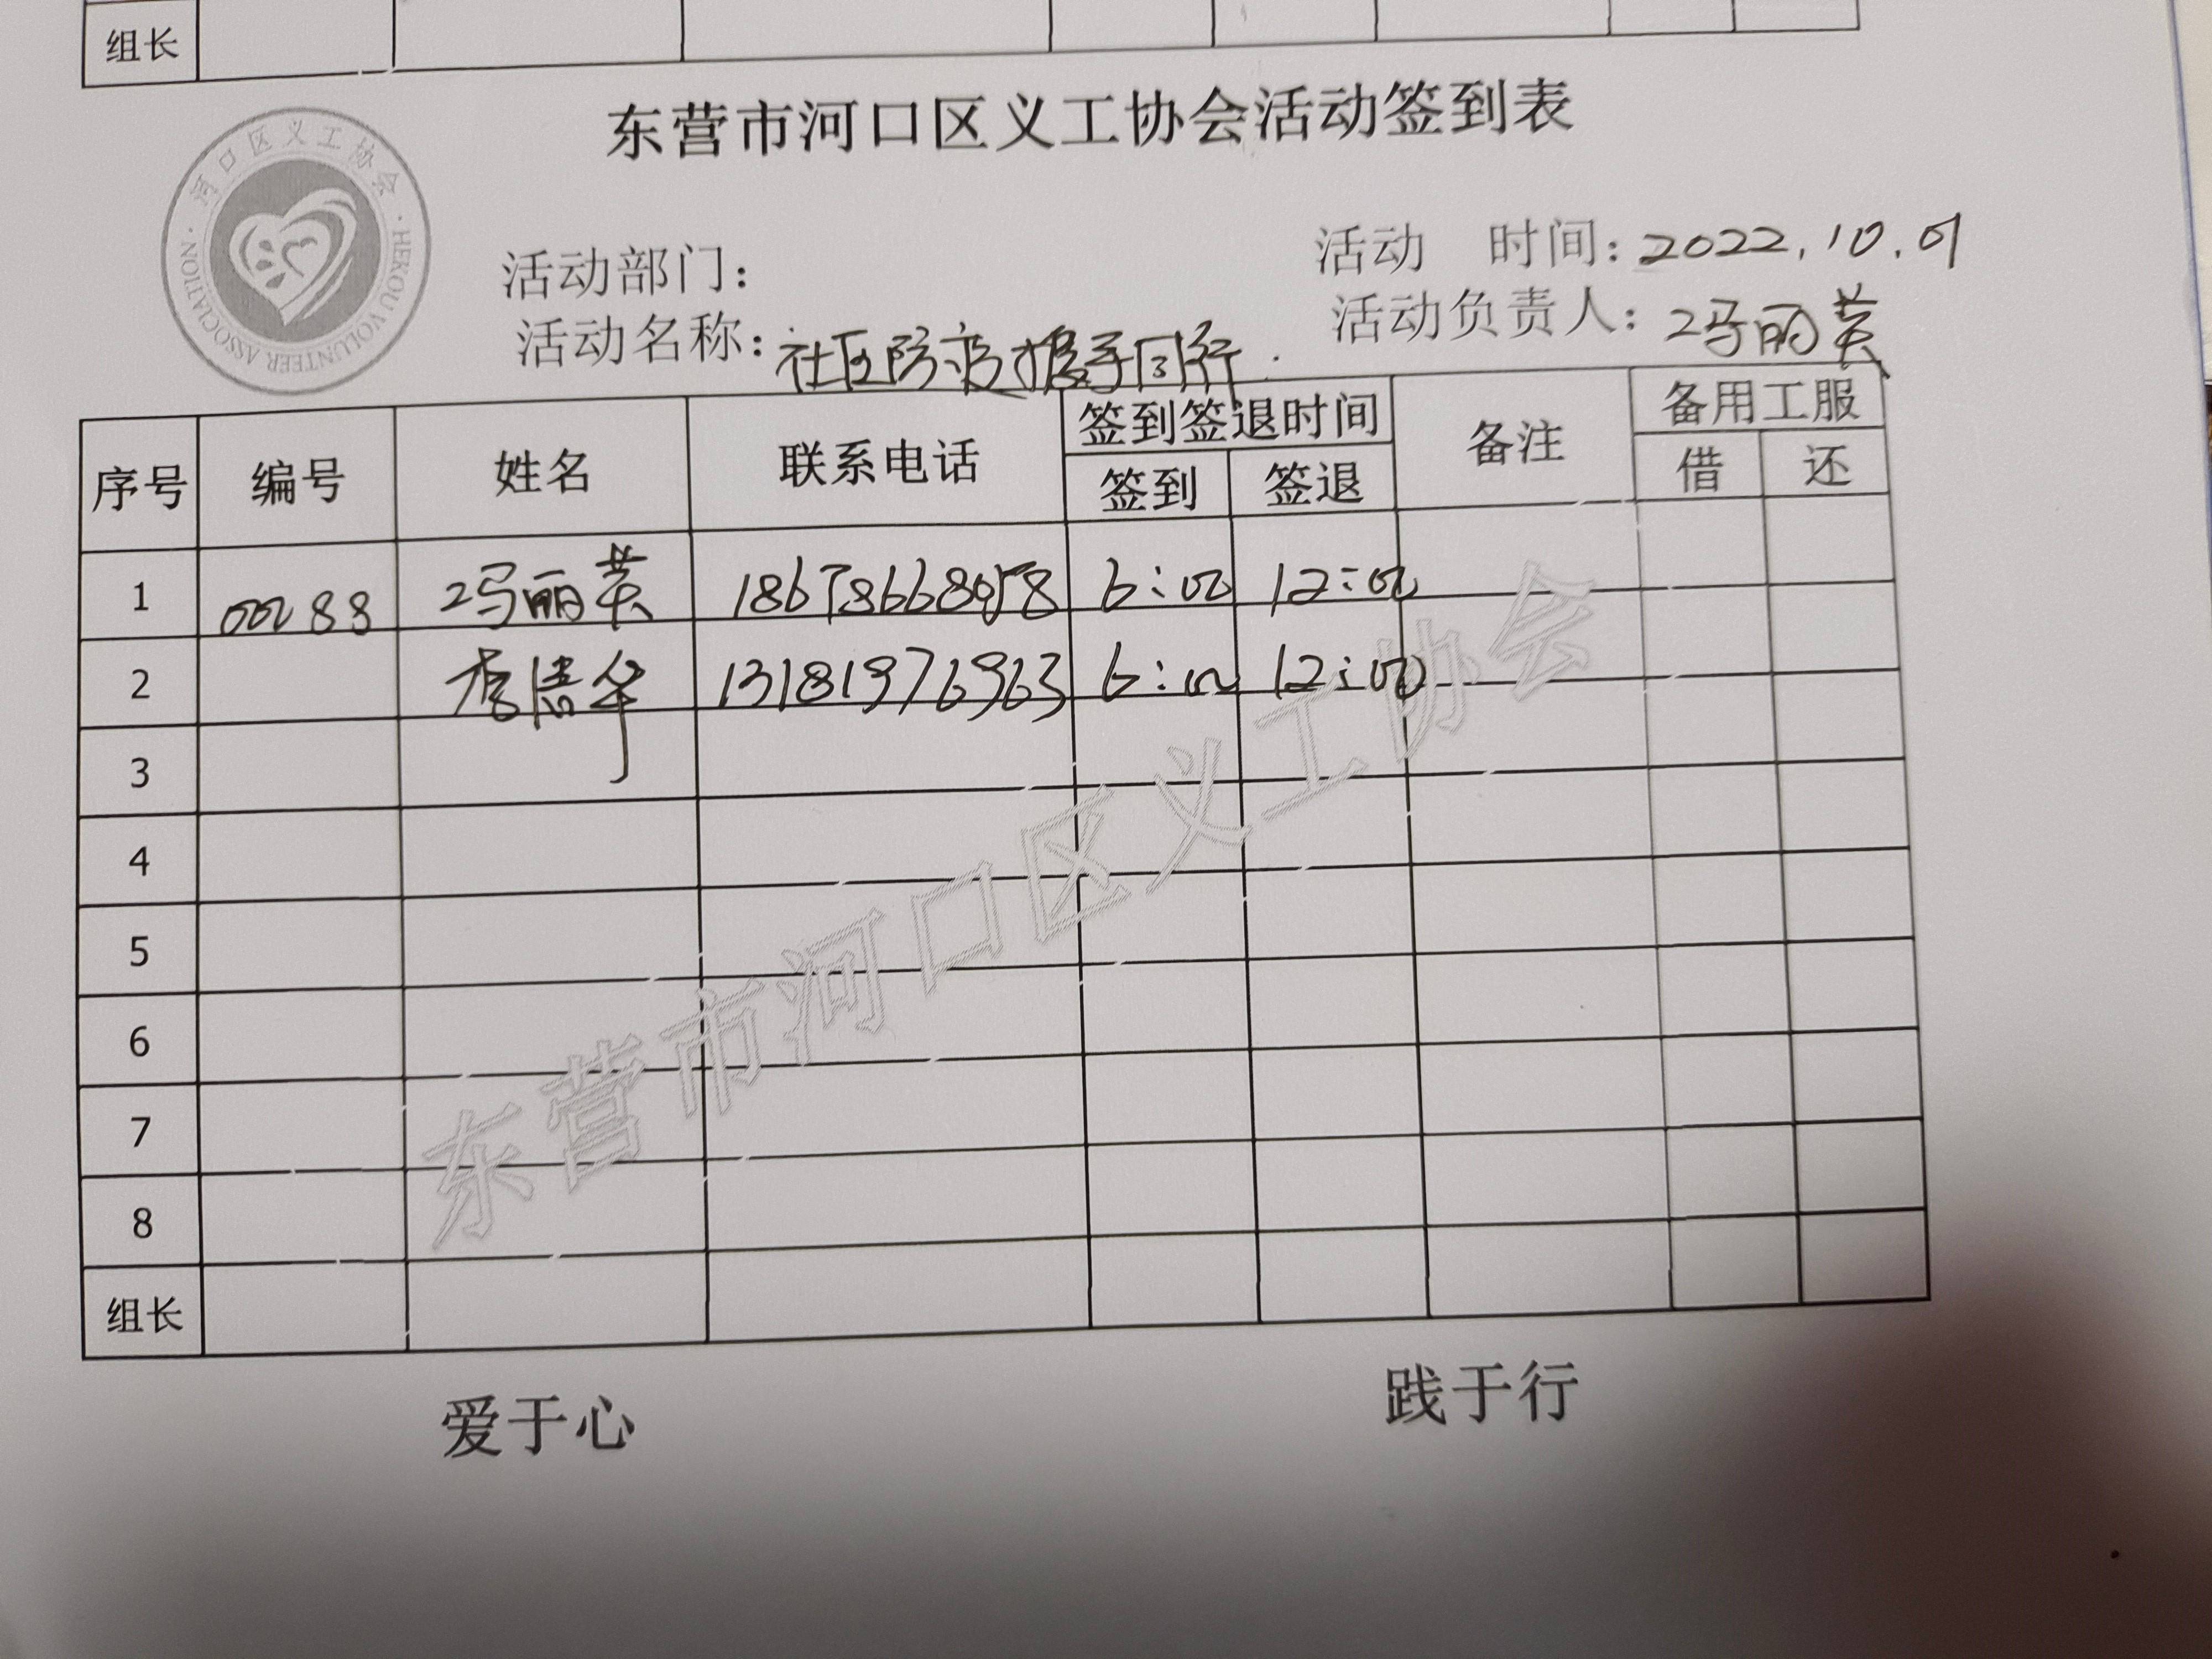 组长
东营市河口区义工协会活动签到表
河口区义工协会
HEKOU VOLUNTEER ASSOCIATION
活动部门：
活动 时间：2022.10.01
活动名称：社区防疫携手同行
活动负责人：冯丽英
序号 编号 姓名 联系电话 签到签退时间 备注 备用工服
签到 签退 借 还
1 00288 冯丽英 18678668058 6:00 12:00
2 李清华 13181976963 6:00 12:00
3
4
5
6
7
8
组长
东营市河口区义工协会
爱于心 践于行